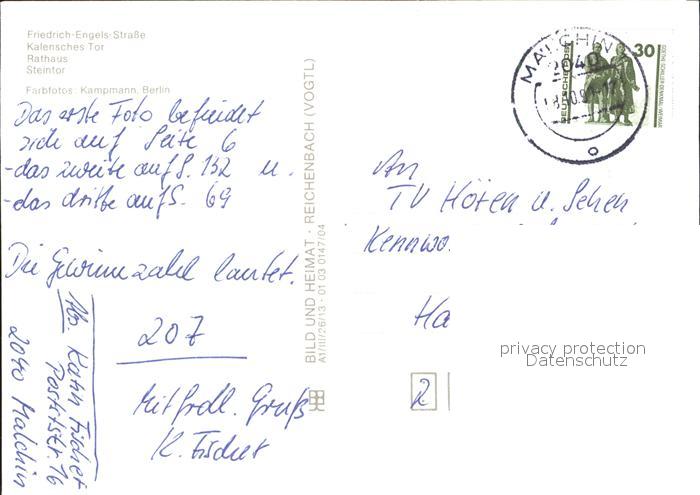 Friedrich-Engels-Straße
Kalensches Tor
Rathaus
Steintor
Farbfotos: Kampmann, Berlin
Das erste Foto befindet
sich auf Seite 6
-das zweite auf S. 132 u.
-das dritte auf S. 69
Die Gewinnzahl lautet.
207
Mit frdl. Gruß
K. Fischer
Abs. Karin Fischer
Poststr. 16
2040 Malchin
BILD UND HEIMAT · REICHENBACH (VOGTL)
A1/III/26/13 · 01 03 0147/04
MALCHIN
2040
DEUTSCHE POST
30
GOETHE-SCHILLER-DENKMAL WEIMAR
An
TV Hören u. Sehen
Kennwo
Ha
2
privacy protection
Datenschutz